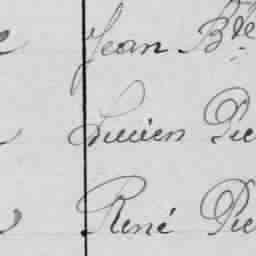 Jean Bte
Lucien Pie
René Pie